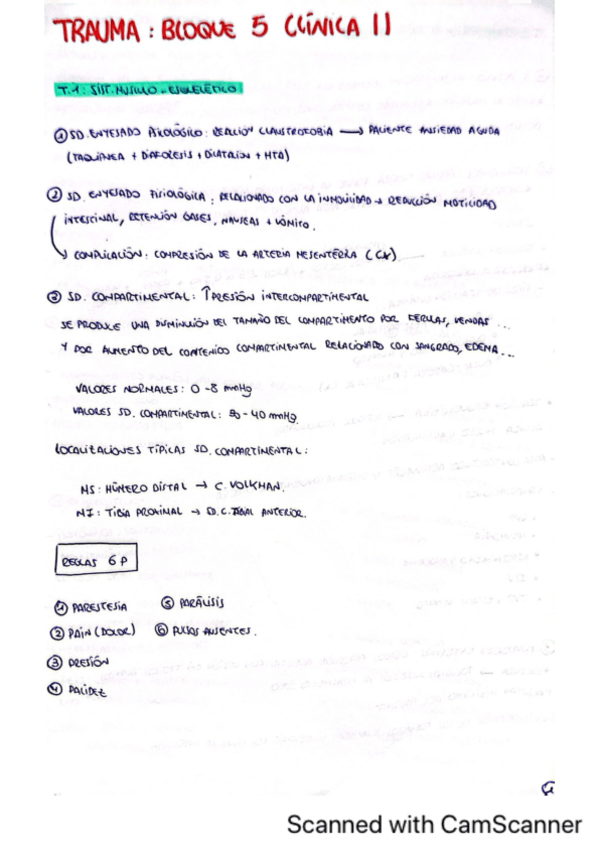 TRAUMA: BLOQUE 5 CLÍNICA II
T.1: SIST. MÚSCULO-ESQUELÉTICO
① SD. ENYESADO PSICOLÓGICO: REACCIÓN CLAUSTROFOBIA → PACIENTE ANSIEDAD AGUDA
(TAQUIPNEA + DIAFORESIS + DILATACIÓN + HTA)
② SD. ENYESADO FISIOLÓGICA: RELACIONADO CON LA INMOVILIDAD → REDUCCIÓN MOTILIDAD
INTESTINAL, RETENCIÓN GASES, NAUSEAS + VÓMITO.
↳ COMPLICACIÓN: COMPRESIÓN DE LA ARTERIA MESENTÉRICA (CX)
③ SD. COMPARTIMENTAL: ↑PRESIÓN INTERCOMPARTIMENTAL
SE PRODUCE UNA DISMINUCIÓN DEL TAMAÑO DEL COMPARTIMENTO POR FERULAS, VENDAS ...
Y POR AUMENTO DEL CONTENIDO COMPARTIMENTAL RELACIONADO CON SANGRADO, EDEMA ...
VALORES NORMALES: 0-8 mmHg
VALORES SD. COMPARTIMENTAL: 30-40 mmHg
LOCALIZACIONES TÍPICAS SD. COMPARTIMENTAL:
MS: HÚMERO DISTAL → C. VOLKMAN.
MI: TIBIA PROXIMAL → SD. C. TIBIAL ANTERIOR.
REGLAS 6P
① PARESTESIA ⑤ PARÁLISIS
② PAIN (DOLOR) ⑥ PULSOS AUSENTES.
③ PRESIÓN
④ PALIDEZ
Scanned with CamScanner